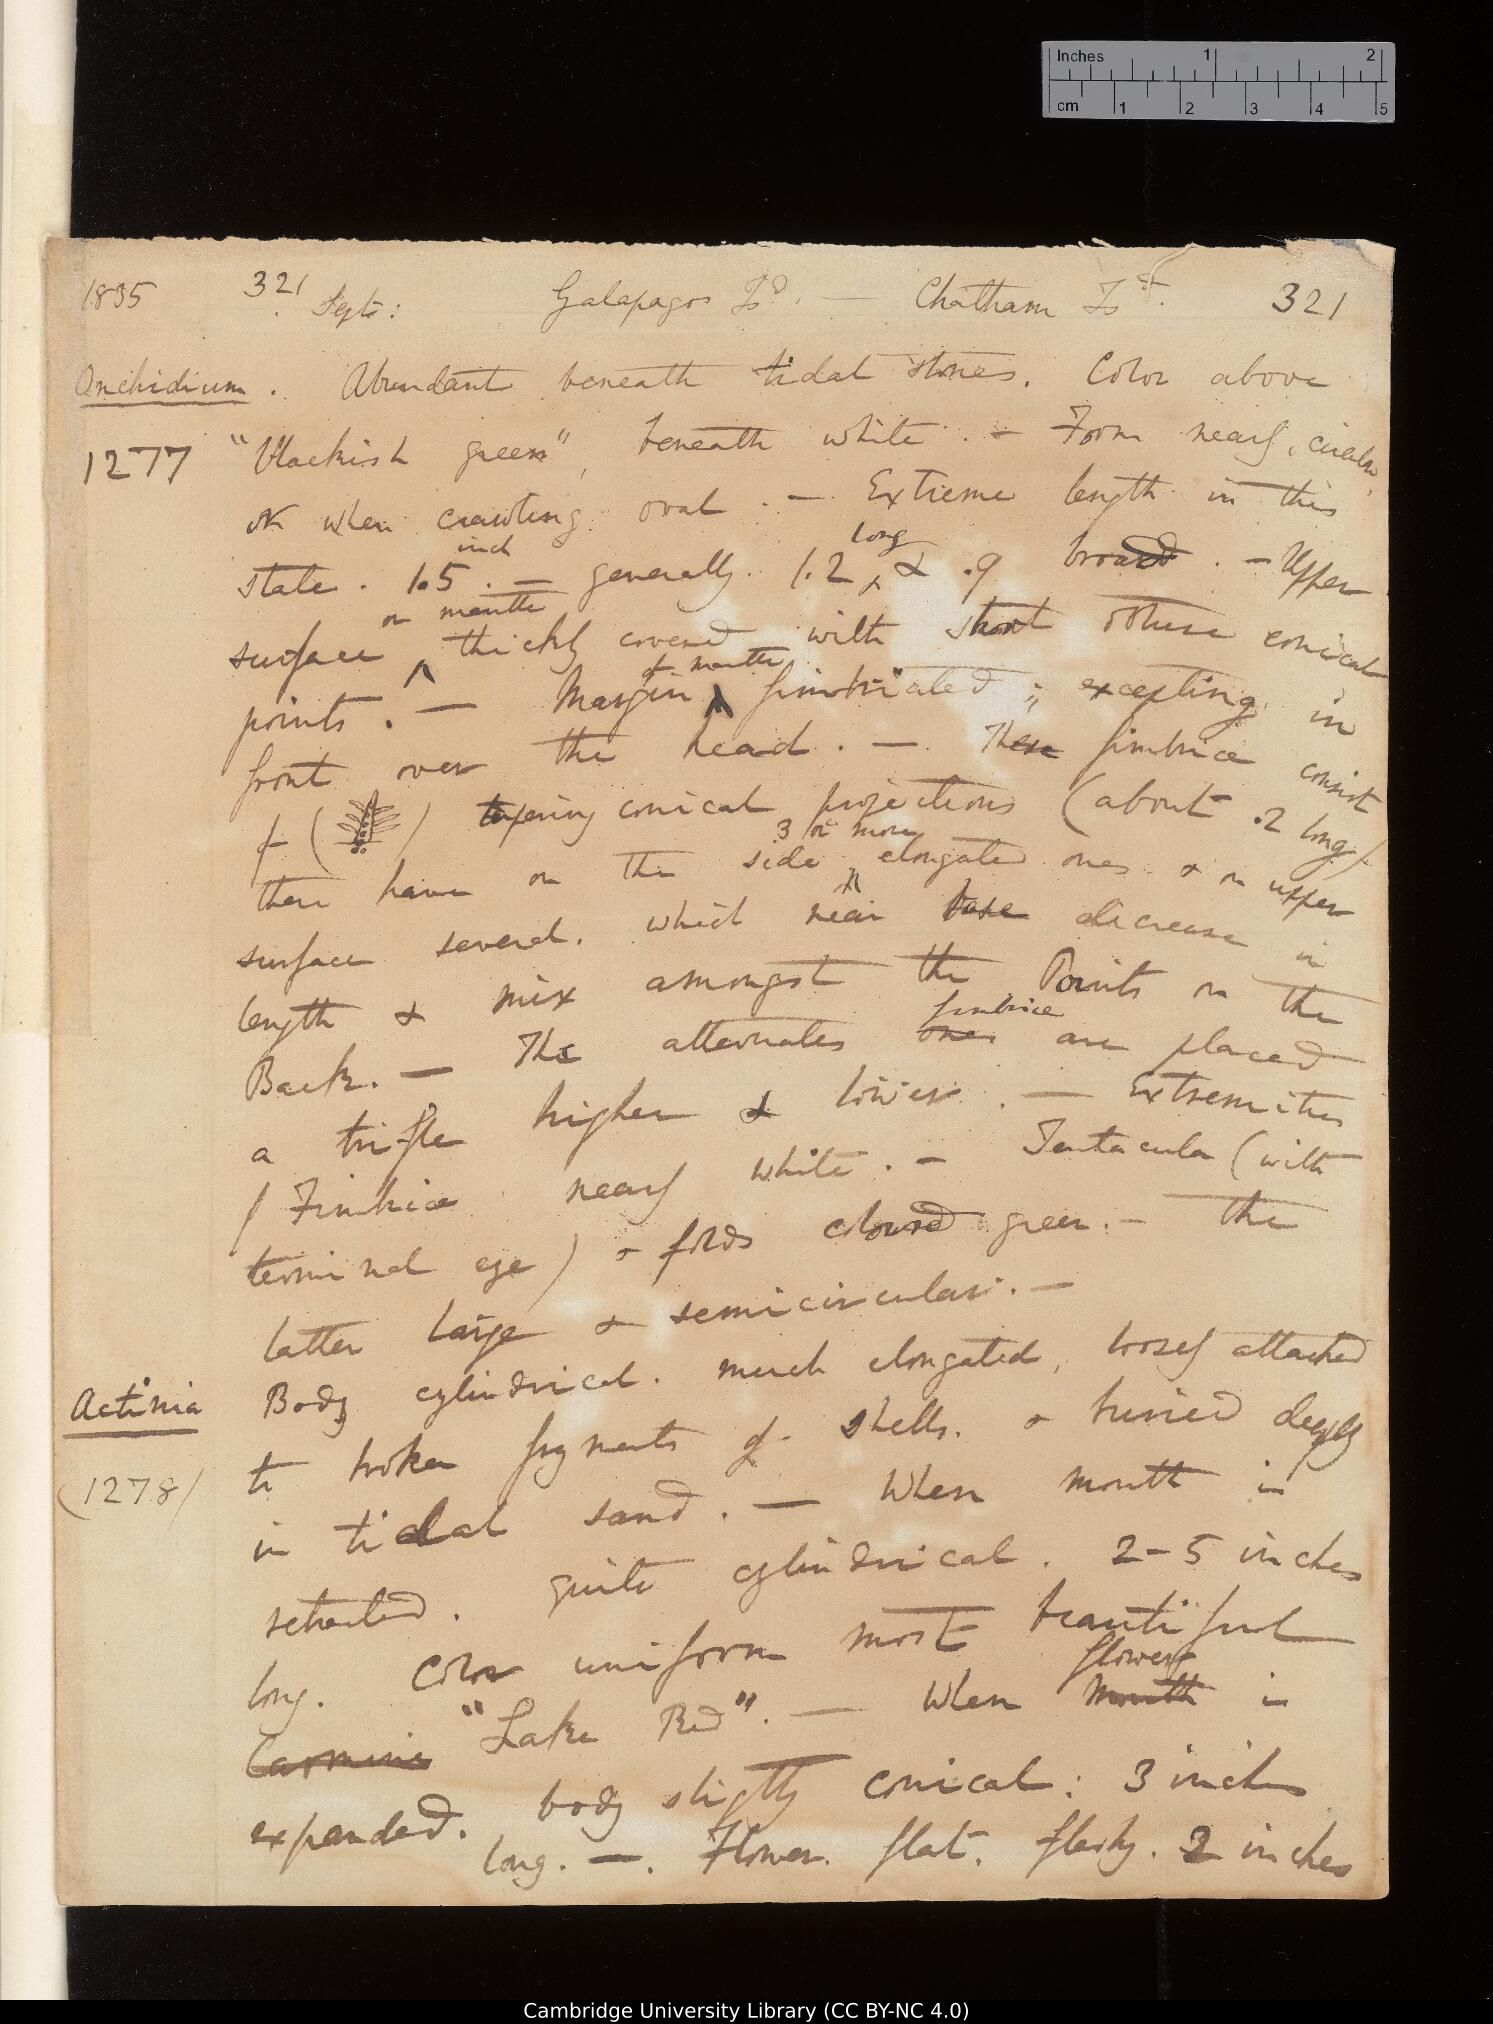 Inches 1 2
cm 1 2 3 4 5
1835 321 Septr: Galapagos Isd. — Chatham Isd. 321
Onchidium. Abundant beneath tidal stones. Color above
1277 "Blackish green", beneath white. — Form nearly circular,
or when crawling oval. — Extreme length in this
state. 1.5 inch. — generally 1.2 long & .9 broad. — Upper
surface or mantle thickly covered with short obtuse conical
points. — Margin of mantle fimbriated; excepting in
front over the head. — These fimbriæ consist
of ( ) tapering conical projections (about .2 long)
these have on the side 3 or more elongated ones & on upper
surface several. which near base decrease in
length & mix amongst the Points on the
Back. — The alternates ones fimbriæ are placed
a trifle higher & lower. — Extremities
of Fimbriæ nearly white. — Tentacula (with
terminal eye) & folds coloured green. — the
latter large & semicircular. —
Actinia Body cylindrical. much elongated, loosely attached
(1278) to broken fragments of shells. & buried deeply
in tidal sand. — When mouth is
retracted. quite cylindrical. 2-5 inches
long. Color uniform most beautiful
Carmine "Lake Red". — When mouth flower is
expanded. body slightly conical: 3 inches
long. —. Flower. flat. fleshy. 2 inches
Cambridge University Library (CC BY-NC 4.0)